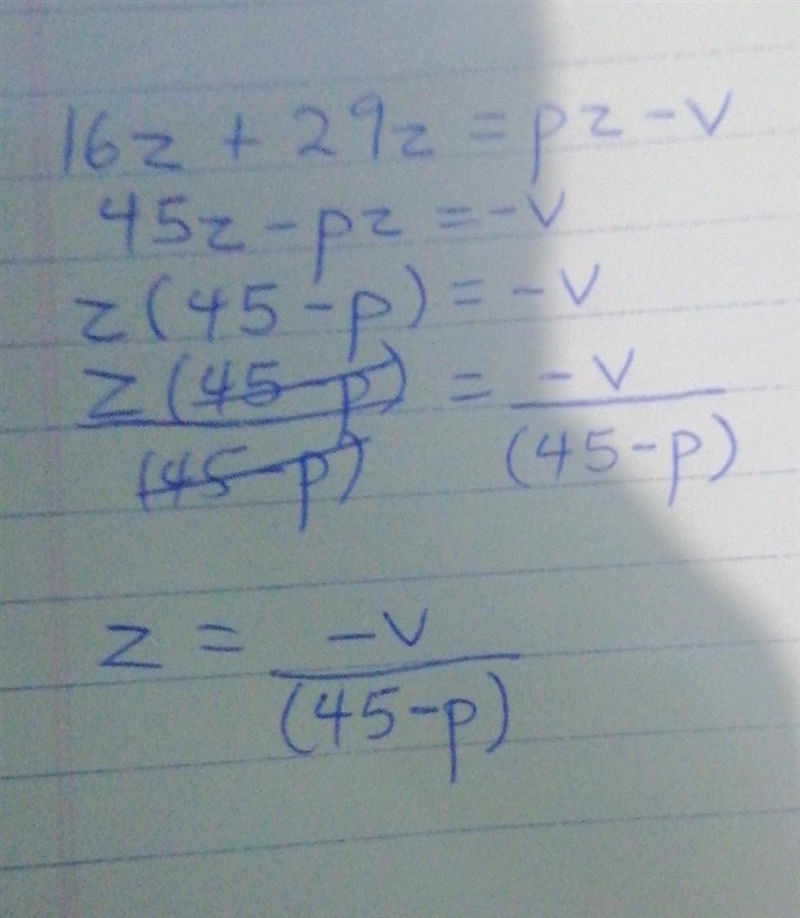 16z + 29z = pz - v
45z - pz = -v
z(45 - p) = -v
z(45 - p) / (45 - p) = -v / (45 - p)
z = -v / (45 - p)